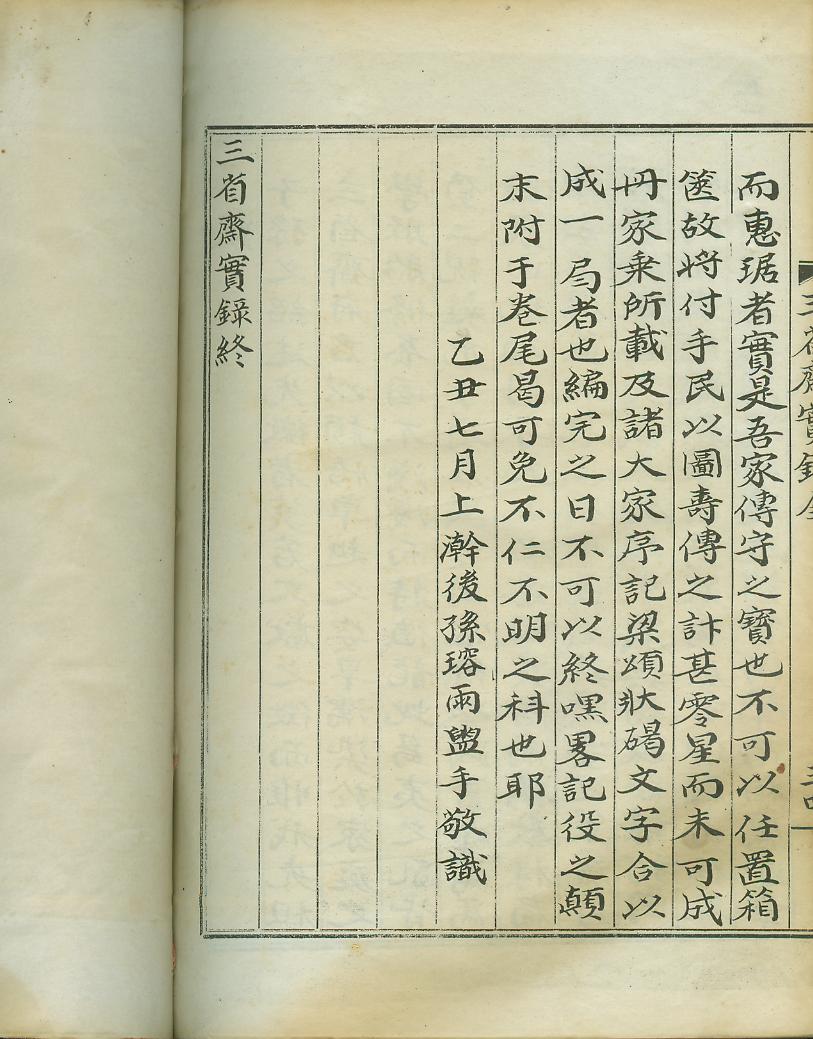 三省齋實錄全
三四
而惠琚者實是吾家傳守之寶也不可以任置箱
篋故將付手民以圖壽傳之計甚零星而未可成
冊家乘所載及諸大家序記梁頌狀碣文字合以
成一局者也編完之日不可以終嘿畧記役之顛
末附于卷尾曷可免不仁不明之科也耶
乙丑七月上澣後孫瑢雨盥手敬識
三省齋實錄終